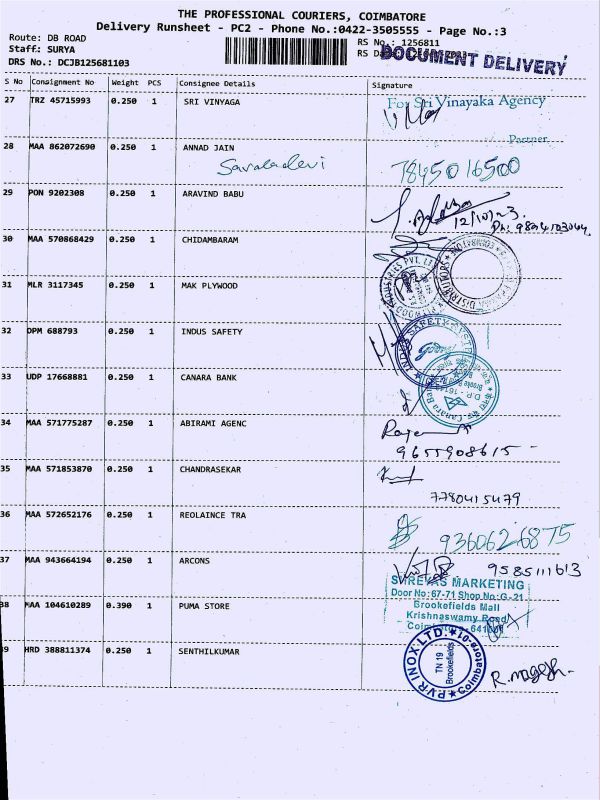 THE PROFESSIONAL COURIERS, COIMBATORE
Delivery Runsheet - PC2 - Phone No.:0422-3505555 - Page No.:3
Route: DB ROAD
Staff: SURYA
DRS No.: DCJB125681103
RS No.: 1256811
RS
DOCUMENT DELIVERY
S No Consignment No Weight PCS Consignee Details Signature
27 TRZ 45715993 0.250 1 SRI VINYAGA
For Sri Vinayaka Agency
Partner
28 MAA 862072690 0.250 1 ANNAD JAIN
Saraladevi
7845016500
29 PON 9202308 0.250 1 ARAVIND BABU
12/10/23
Ph: 9894703044
30 MAA 570868429 0.250 1 CHIDAMBARAM
DISTRIBUTORS
31 MLR 3117345 0.250 1 MAK PLYWOOD
INDUSTRIES PVT. LTD
32 DPM 688793 0.250 1 INDUS SAFETY
INDUS SAFETY SYSTEMS
Godrej
33 UDP 17668881 0.250 1 CANARA BANK
Canara Bank
34 MAA 571775287 0.250 1 ABIRAMI AGENC
9655908615
35 MAA 571853870 0.250 1 CHANDRASEKAR
7780415479
36 MAA 572652176 0.250 1 REOLAINCE TRA
9360626875
37 MAA 943664194 0.250 1 ARCONS
9585111613
SHREYAS MARKETING
Door No:67-71 Shop No:G-21
Brookefields Mall
Krishnaswamy Road
Coimbatore - 641001
38 MAA 104610289 0.390 1 PUMA STORE
39 HRD 388811374 0.250 1 SENTHILKUMAR
PVR INOX LTD. Coimbatore-01
TN 19
Brookefields
R. Magesh